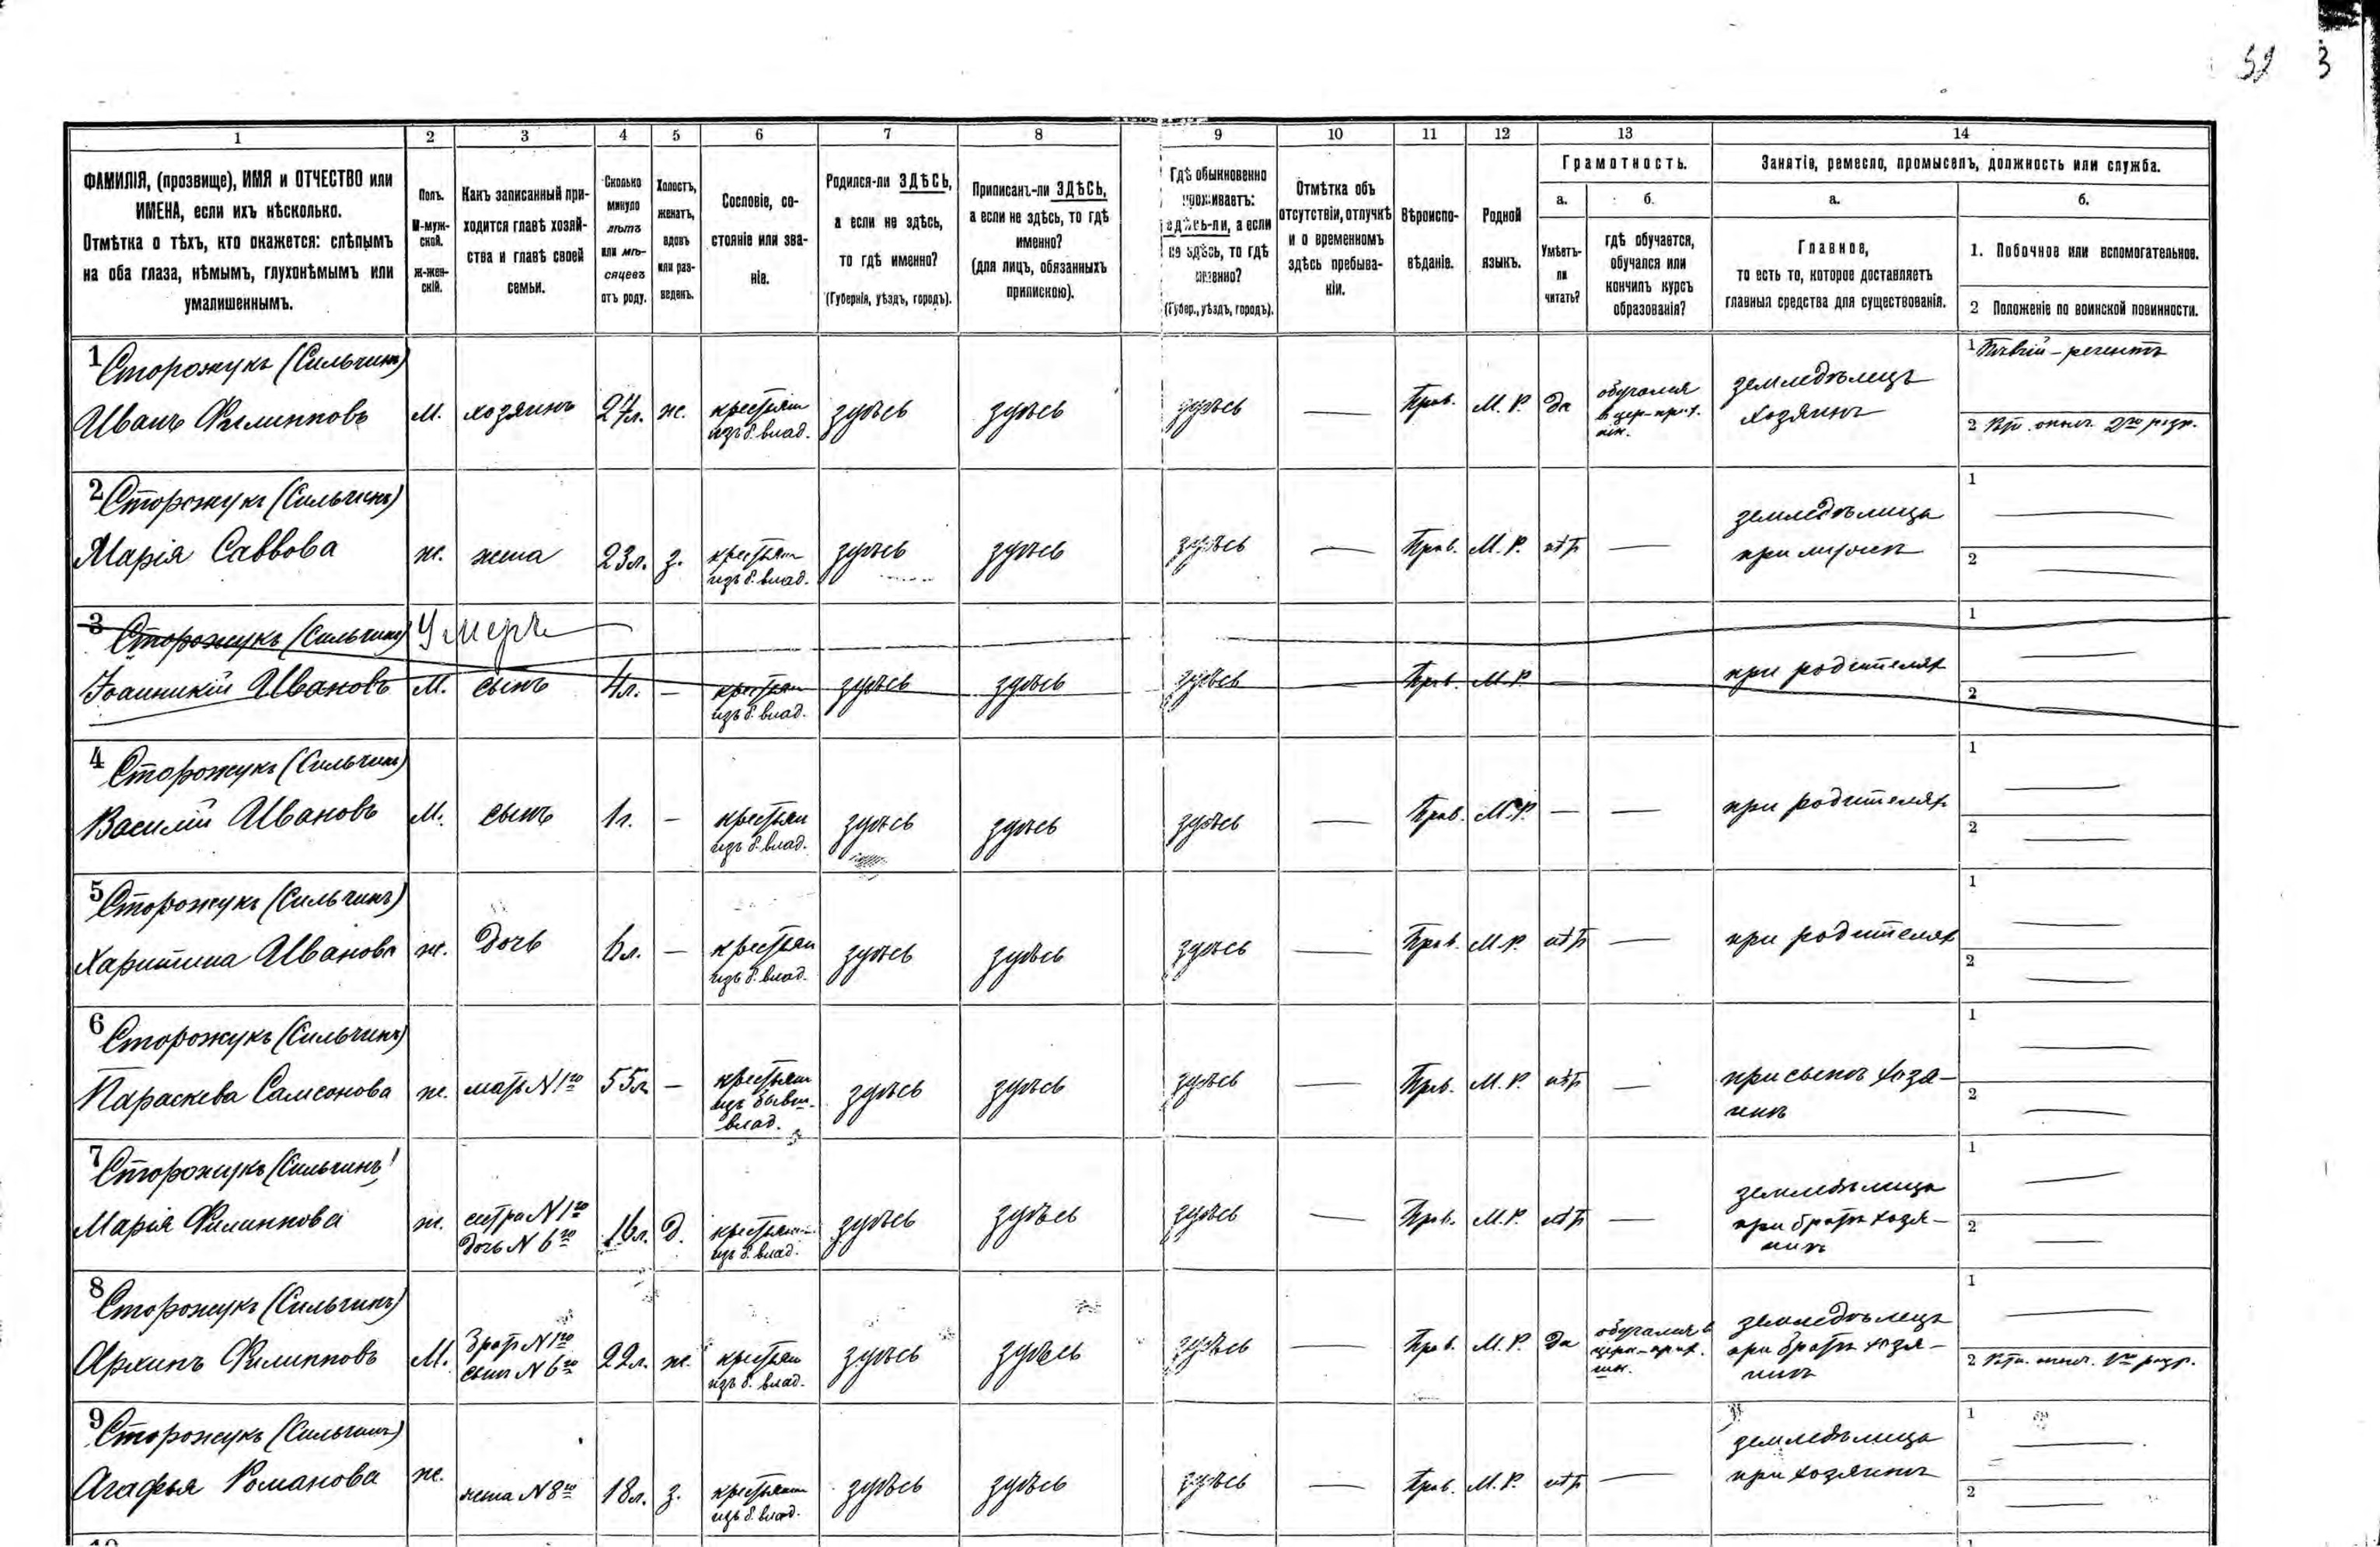 52 3
1 2 3 4 5 6 7 8 9 10 11 12 13 14
ФАМИЛІЯ, (прозвище), ИМЯ и ОТЧЕСТВО или
ИМЕНА, если ихъ нѣсколько.
Отмѣтка о тѣхъ, кто окажется: слѣпымъ
на оба глаза, нѣмымъ, глухонѣмымъ или
умалишеннымъ.
Полъ.
М-муж-
ской.
Ж-жен-
скій.
Какъ записанный при-
ходится главѣ хозяй-
ства и главѣ своей
семьи.
Сколько
минуло
лѣтъ
или мѣ-
сяцевъ
отъ роду.
Холостъ,
женатъ,
вдовъ
или раз-
веденъ.
Сословіе, со-
стояніе или зва-
ніе.
Родился-ли ЗДѢСЬ,
а если не здѣсь,
то гдѣ именно?
(Губернія, уѣздъ, городъ).
Приписанъ-ли ЗДѢСЬ,
а если не здѣсь, то гдѣ
именно?
(для лицъ, обязанныхъ
припискою).
Гдѣ обыкновенно
проживаетъ:
здѣсь-ли, а если
не здѣсь, то гдѣ
именно?
(Губер., уѣздъ, городъ).
Отмѣтка объ
отсутствіи, отлучкѣ
и о временномъ
здѣсь пребыва-
ніи.
Вѣроиспо-
вѣданіе.
Родной
языкъ.
Грамотность.
а.
Умѣетъ-
ли
читать?
б.
гдѣ обучается,
обучался или
кончилъ курсъ
образованія?
Занятіе, ремесло, промыселъ, должность или служба.
а.
Главное,
то есть то, которое доставляетъ
главныя средства для существованія.
б.
1. Побочное или вспомогательное.
2 Положеніе по воинской повинности.
1 Сторожукъ (Сильчикъ)
Иванъ Филипповъ М. хозяинъ 27л. ж. крестьян изъ б. влад. здѣсь здѣсь здѣсь — Прав. М. Р. да обучался
в цер-прих.
шк.
земледѣлецъ
хозяинъ
1 Пѣвчій – регентъ
2 Рат. ополч. 2го разр.
2 Сторожукъ (Сильчикъ)
Марія Саввова ж. жена 23л. з. крестьян изъ б. влад. здѣсь здѣсь здѣсь — Прав. М. Р. нѣт —
земледѣлица
при мужѣ
1 —
2 —
3 Сторожукъ (Сильчикъ) Умеръ
Іоанникій Ивановъ М. сынъ 4л. — крестьян изъ б. влад. здѣсь здѣсь здѣсь — Прав. М. Р. — при родителях
1 —
2 —
4 Сторожукъ (Сильчикъ)
Василій Ивановъ М. сынъ 1г. — крестьян изъ б. влад. здѣсь здѣсь здѣсь — Прав. М. Р. — — при родителях
1 —
2 —
5 Сторожукъ (Сильчикъ)
Харитина Иванова ж. дочь 6л. — крестьян изъ б. влад. здѣсь здѣсь здѣсь — Прав. М. Р. нѣт — при родителях
1 —
2 —
6 Сторожукъ (Сильчикъ)
Параскева Самсонова ж. мать N 1го 55л — крестьян изъ бывш. влад. здѣсь здѣсь здѣсь — Прав. М. Р. нѣт —
при сынѣ хозя-
инѣ
1 —
2 —
7 Сторожукъ (Сильчикъ)
Марія Филиппова ж. сестра N 1го
дочь N 6го 16л. д. крестьян изъ б. влад. здѣсь здѣсь здѣсь — Прав. М. Р. нѣт —
земледѣлица
при братѣ хозя-
инѣ
1 —
2 —
8 Сторожукъ (Сильчикъ)
Архипъ Филипповъ М. брат N 1го
сын N 6го 22л. ж. крестьян изъ б. влад. здѣсь здѣсь здѣсь — Прав. М. Р. да обучался в
церк-прих.
шк.
земледѣлецъ
при братѣ хозя-
инѣ
1 —
2 Рат. ополч. 1го разр.
9 Сторожукъ (Сильчикъ)
Агафья Романова ж. жена N 8го 18л. з. крестьян изъ б. влад. здѣсь здѣсь здѣсь — Прав. М. Р. нѣт —
земледѣлица
при хозяинѣ
1 —
2 —